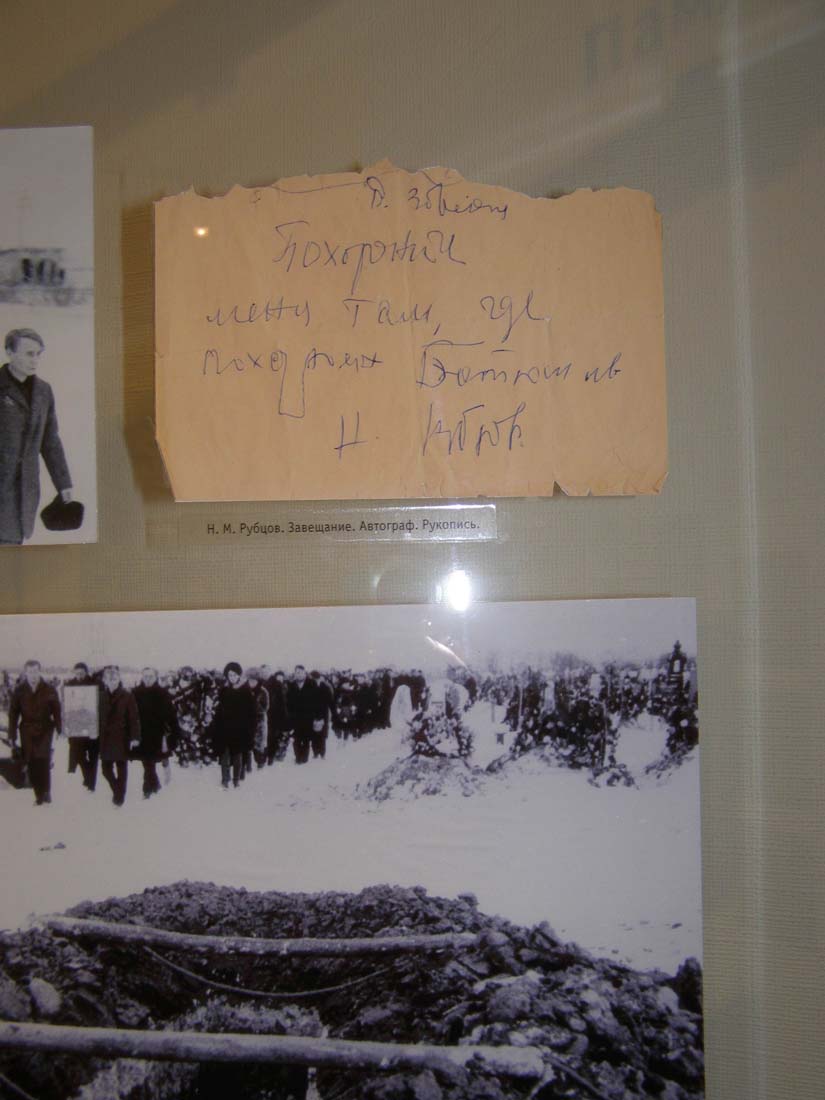 Похороните
меня там, где
похоронен Батюшков
Н. Рубцов
Н. М. Рубцов. Завещание. Автограф. Рукопись.